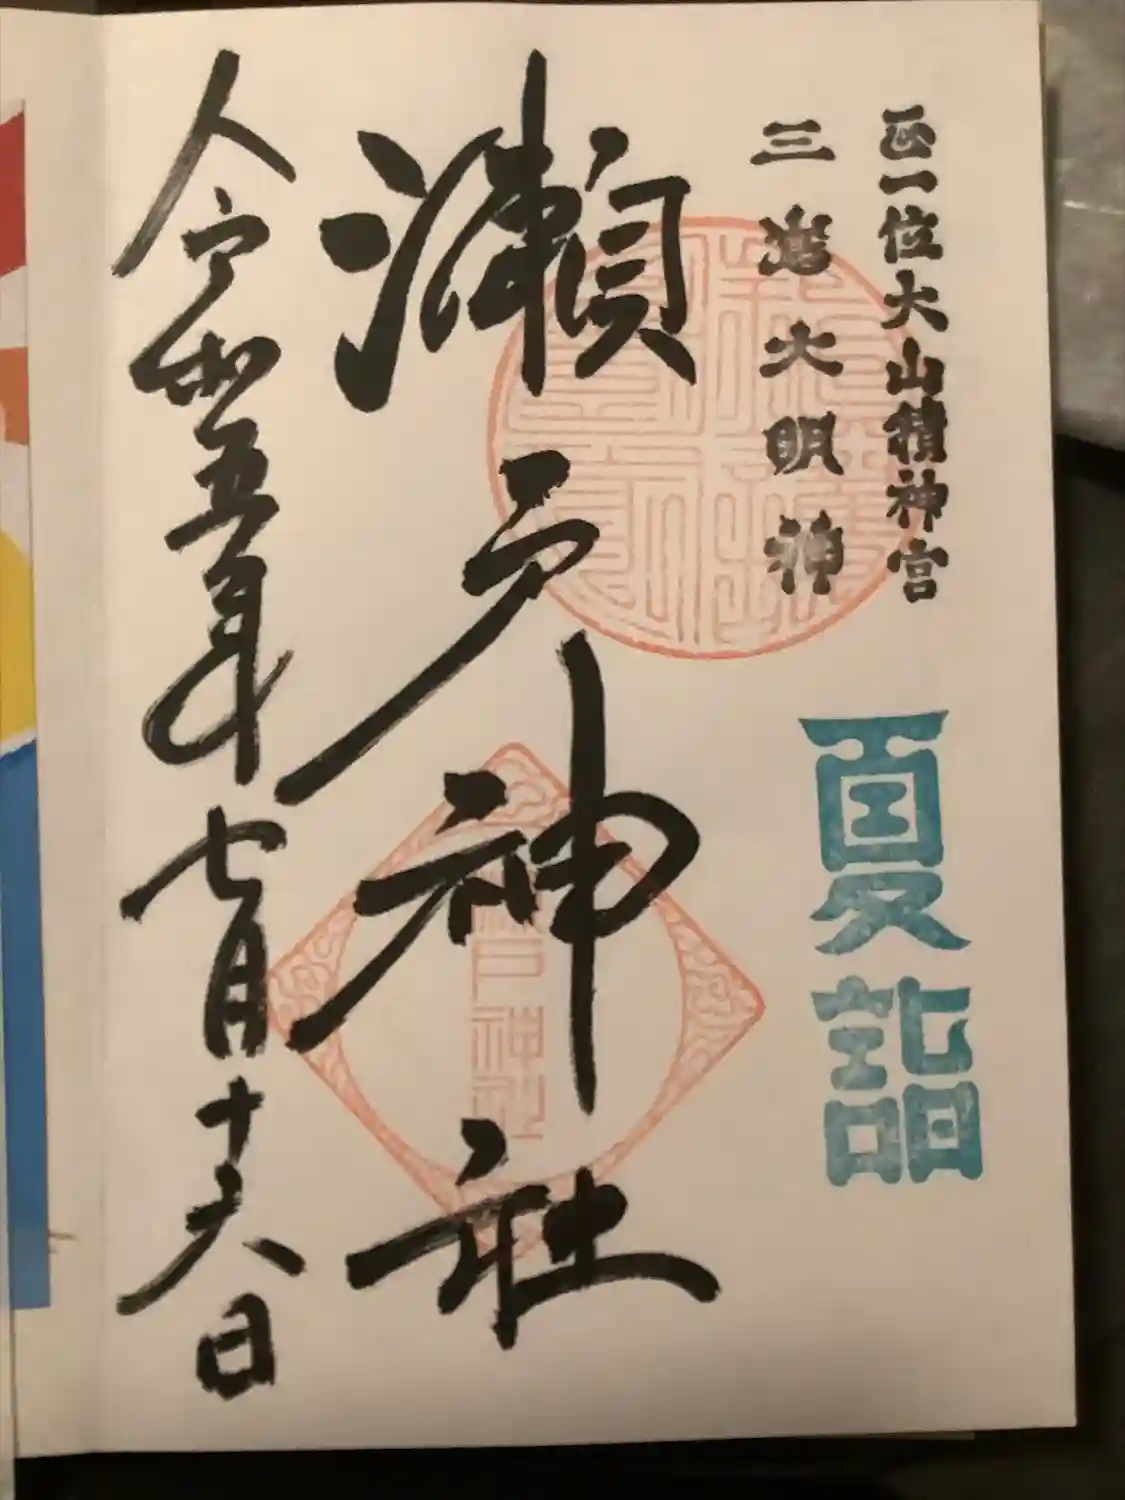 正一位大山積神宮
三嶌大明神
夏詣
瀬戸神社
令和五年七月十六日
戸神社